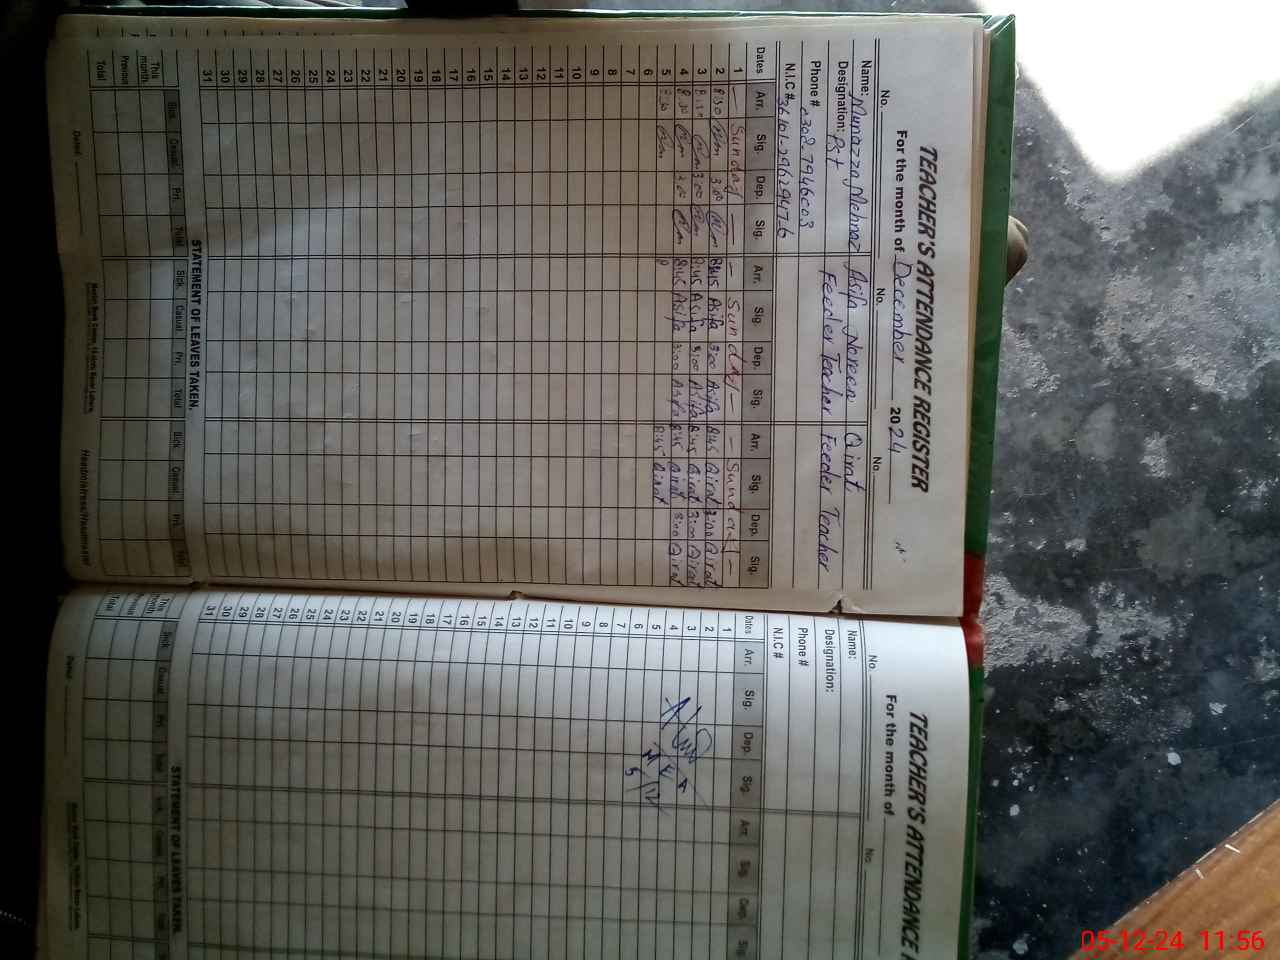 TEACHER'S ATTENDANCE REGISTER
For the month of December 2024
No. No. No.
Name: Munazza Mehnaz Asifa Noreen Qirat
Designation: Pst Feeder Teacher Feeder Teacher
Phone # 0302-7946003
N.I.C #
Dates Arr. Sig. Dep. Sig. Arr. Sig. Dep. Sig. Arr. Sig. Dep. Sig.
1 — Sunday — — Sunday — — Sunday —
2 8:30 3:00 8:45 Asifa 3:00 Asifa 8:45 Qirat 3:00 Qirat
3 8:30 3:00 8:45 Asifa 3:00 Asifa 8:45 Qirat 3:00 Qirat
4 8:30 3:00 8:45 Asifa 3:00 Asifa 8:45 Qirat 3:00 Qirat
5 8:30 8:45 Qirat
6
7
8
9
10
11
12
13
14
15
16
17
18
19
20
21
22
23
24
25
26
27
28
29
30
31
STATEMENT OF LEAVES TAKEN.
Sick. Casual. Pri. Total Sick. Casual. Pri. Total Sick. Casual. Pri. Total
This month
Previous
Total
Dated Headmistress/Headmaster
TEACHER'S ATTENDANCE
For the month of
No. No.
Name:
Designation:
Phone #
N.I.C #
Dates Arr. Sig. Dep. Sig. Arr. Sig. Dep. Sig.
1
2
3
4
5
6
7
8
9
10
11
12
13
14
15
16
17
18
19
20
21
22
23
24
25
26
27
28
29
30
31
STATEMENT OF LEAVES TAKEN.
This month
Previous
Total
Dated
05-12-24 11:56